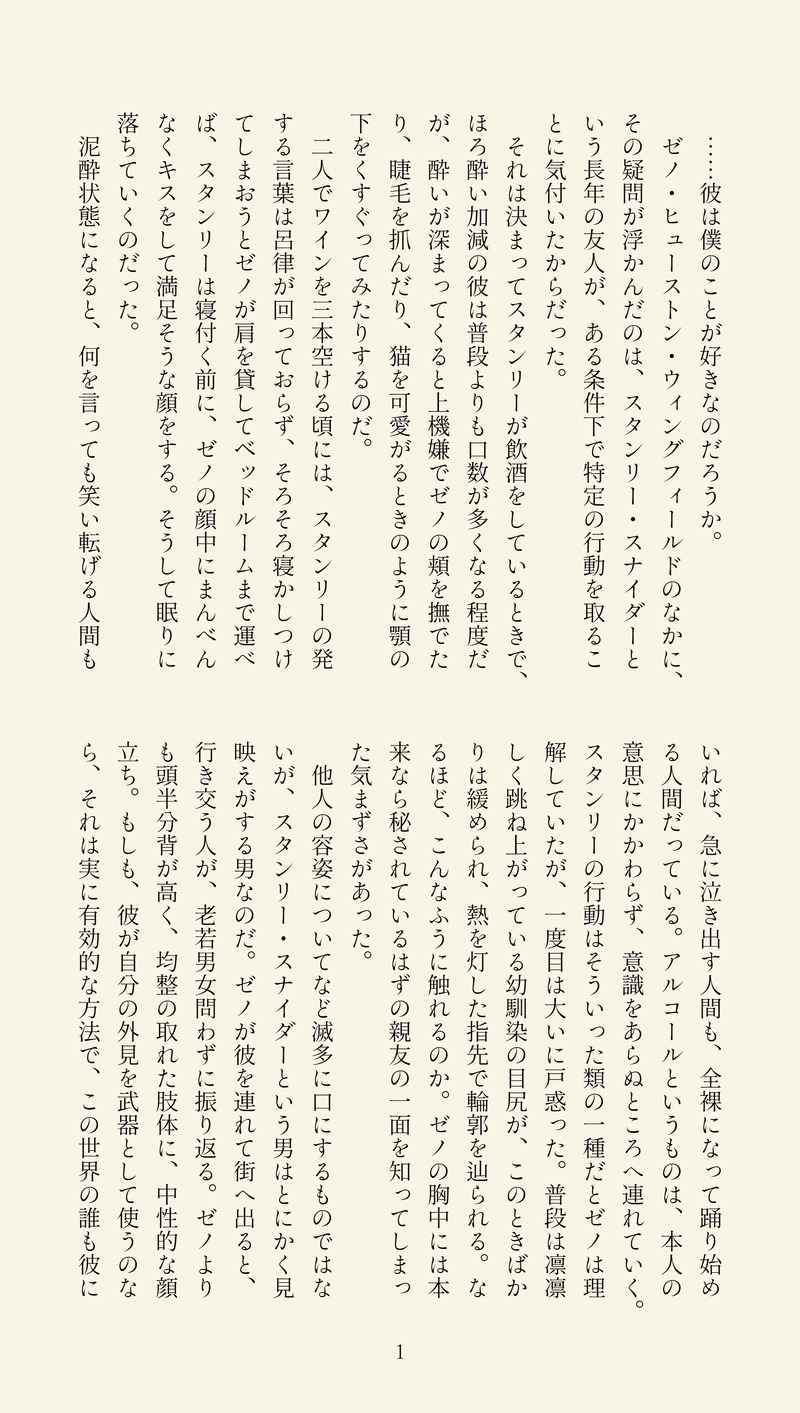 ……彼は僕のことが好きなのだろうか。
ゼノ・ヒューストン・ウィングフィールドのなかに、
その疑問が浮かんだのは、スタンリー・スナイダーと
いう長年の友人が、ある条件下で特定の行動を取るこ
とに気付いたからだった。
それは決まってスタンリーが飲酒をしているときで、
ほろ酔い加減の彼は普段よりも口数が多くなる程度だ
が、酔いが深まってくると上機嫌でゼノの頬を撫でた
り、睫毛を抓んだり、猫を可愛がるときのように顎の
下をくすぐってみたりするのだ。
二人でワインを三本空ける頃には、スタンリーの発
する言葉は呂律が回っておらず、そろそろ寝かしつけ
てしまおうとゼノが肩を貸してベッドルームまで運べ
ば、スタンリーは寝付く前に、ゼノの顔中にまんべん
なくキスをして満足そうな顔をする。そうして眠りに
落ちていくのだった。
泥酔状態になると、何を言っても笑い転げる人間も
いれば、急に泣き出す人間も、全裸になって踊り始め
る人間だっている。アルコールというものは、本人の
意思にかかわらず、意識をあらぬところへ連れていく。
スタンリーの行動はそういった類の一種だとゼノは理
解していたが、一度目は大いに戸惑った。普段は凛凛
しく跳ね上がっている幼馴染の目尻が、このときばか
りは緩められ、熱を灯した指先で輪郭を辿られる。な
るほど、こんなふうに触れるのか。ゼノの胸中には本
来なら秘されているはずの親友の一面を知ってしまっ
た気まずさがあった。
他人の容姿についてなど滅多に口にするものではな
いが、スタンリー・スナイダーという男はとにかく見
映えがする男なのだ。ゼノが彼を連れて街へ出ると、
行き交う人が、老若男女問わずに振り返る。ゼノより
も頭半分背が高く、均整の取れた肢体に、中性的な顔
立ち。もしも、彼が自分の外見を武器として使うのな
ら、それは実に有効的な方法で、この世界の誰も彼に
1